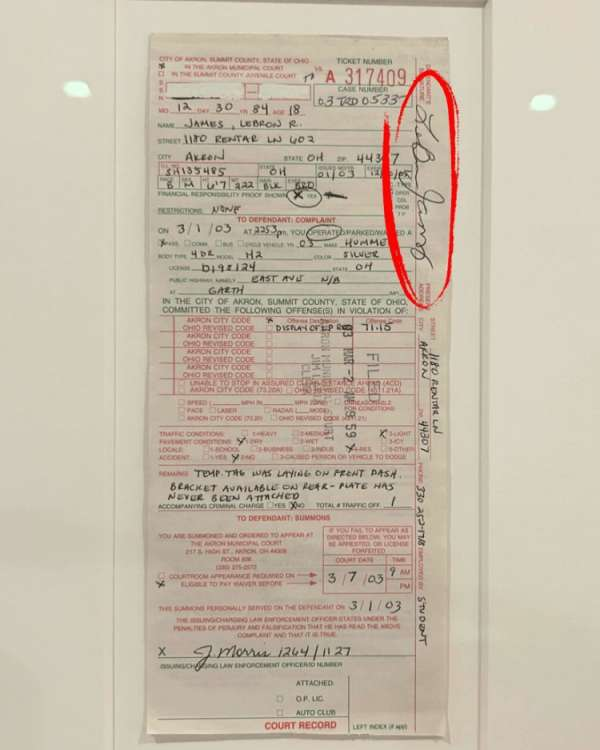 CITY OF AKRON, SUMMIT COUNTY, STATE OF OHIO
IN THE AKRON MUNICIPAL COURT
IN THE SUMMIT COUNTY JUVENILE COURT
TICKET NUMBER
A 317409
CASE NUMBER
03 TRD 0533
MO. 12 DAY 30 YR 84 AGE 18
NAME JAMES, LEBRON R.
STREET 1180 RENTAR LN 602
CITY AKRON STATE OH ZIP 44307
SH135485 OH 01/03
B M 6'7 222 BLK BRO
FINANCIAL RESPONSIBILITY PROOF SHOWN X YES
RESTRICTIONS: NONE
TO DEFENDANT: COMPLAINT
ON 3/1/03 AT 2253 pm, YOU OPERATED/PARKED/WALKED A
PASS. COMM. BUS CYCLE VEHICLE: YR. 03 MAKE HUMME
BODY TYPE 4DR MODEL H2 COLOR SILVER
LICENSE D198124 STATE OH
PUBLIC HIGHWAY, NAMELY EAST AVE N/B
AT GARTH
IN THE CITY OF AKRON, SUMMIT COUNTY, STATE OF OHIO,
COMMITTED THE FOLLOWING OFFENSE(S) IN VIOLATION OF:
AKRON CITY CODE Offense Description Offense Code
OHIO REVISED CODE DISPLAY OF 71.15
AKRON CITY CODE
OHIO REVISED CODE
AKRON CITY CODE
OHIO REVISED CODE
AKRON CITY CODE
OHIO REVISED CODE
FILED
UNABLE TO STOP IN ASSURED CLEAR DISTANCE AHEAD (ACD)
AKRON CITY CODE (73.20A) OHIO REVISED CODE
SPEED ( MPH IN MPH ZONE) UNREASONABLE
PACE LASER RADAR ( MODE) FOR CONDITIONS
AKRON CITY CODE (73.20) OHIO REVISED CODE
TRAFFIC CONDITIONS: 1-HEAVY 2-MEDIUM X 3-LIGHT
PAVEMENT CONDITIONS: X 1-DRY 2-WET 3-ICY
LOCALE: 1-SCHOOL 2-BUSINESS 3-INDUS X 4-RES 5-OTHER
ACCIDENT: 1-YES X 2-NO 3-CAUSED PERSON OR VEHICLE TO DODGE
REMARKS: TEMP. TAG WAS LAYING ON FRONT DASH.
BRACKET AVAILABLE ON REAR - PLATE HAS
NEVER BEEN ATTACHED
ACCOMPANYING CRIMINAL CHARGE YES X NO TOTAL # TRAFFIC OFF. 1
TO DEFENDANT: SUMMONS
YOU ARE SUMMONED AND ORDERED TO APPEAR AT
THE AKRON MUNICIPAL COURT
217 S. HIGH ST., AKRON, OH 44308
ROOM 806
IF YOU FAIL TO APPEAR AS
DIRECTED BELOW, YOU MAY
BE ARRESTED, OR LICENSE
FORFEITED
COURT DATE TIME
3/7/03 9 AM
PM
COURTROOM APPEARANCE REQUIRED ON
X ELIGIBLE TO PAY WAIVER BEFORE
THIS SUMMONS PERSONALLY SERVED ON THE DEFENDANT ON 3/1/03
THE ISSUING/CHARGING LAW ENFORCEMENT OFFICER STATES UNDER THE
PENALTIES OF PERJURY AND FALSIFICATION THAT HE HAS READ THE ABOVE
COMPLAINT AND THAT IT IS TRUE.
X J Morris 1264/1127
ISSUING/CHARGING LAW ENFORCEMENT OFFICER/ID NUMBER
ATTACHED:
O.P. LIC.
AUTO CLUB
COURT RECORD
LEFT INDEX (if app)
LeBron James
STREET 1180 RENTAR LN
CITY AKRON ZIP 44307
PHONE EMPLOYED BY STUDENT